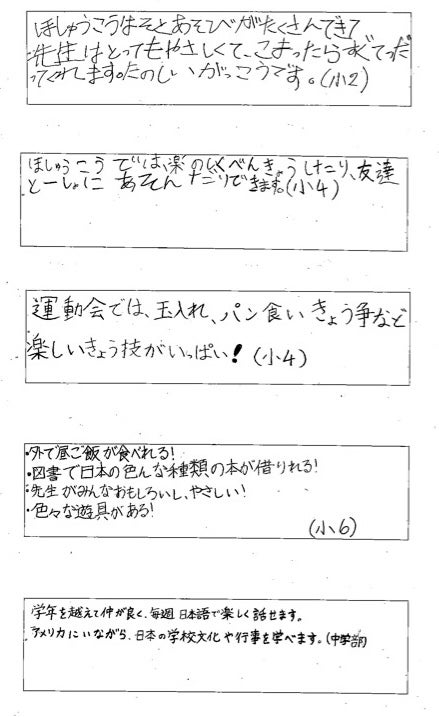 ほしゅうこうはそとあそびがたくさんできて
先生はとってもやさしくて、こまったらすぐてつだ
ってくれます。たのしいがっこうです。(小2)
ほしゅうこうでは、楽しくべんきょうしたり、友達
と一しょにあそんだりできます。(小4)
運動会では、玉入れ、パン食いきょう争など
楽しいきょう技がいっぱい!(小4)
・外で昼ご飯が食べれる!
・図書で日本の色んな種類の本が借りれる!
・先生がみんなおもしろいし、やさしい!
・色々な遊具がある!
(小6)
学年を越えて仲が良く、毎週日本語で楽しく話せます。
アメリカにいながら、日本の学校文化や行事を学べます。(中学部)